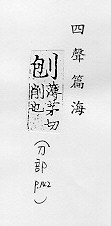 四聲篇海
刨
薄茅切
削也
(刀部